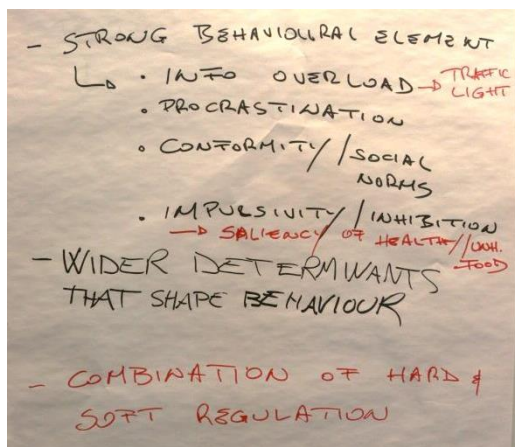 - STRONG BEHAVIOURAL ELEMENT
↳ • INFO OVERLOAD → TRAFFIC LIGHT
• PROCRASTINATION
• CONFORMITY//SOCIAL
NORMS
• IMPULSIVITY//INHIBITION
→ SALIENCY OF HEALTH//UNH.
FOOD
- WIDER DETERMINANTS
THAT SHAPE BEHAVIOUR
- COMBINATION OF HARD &
SOFT REGULATION